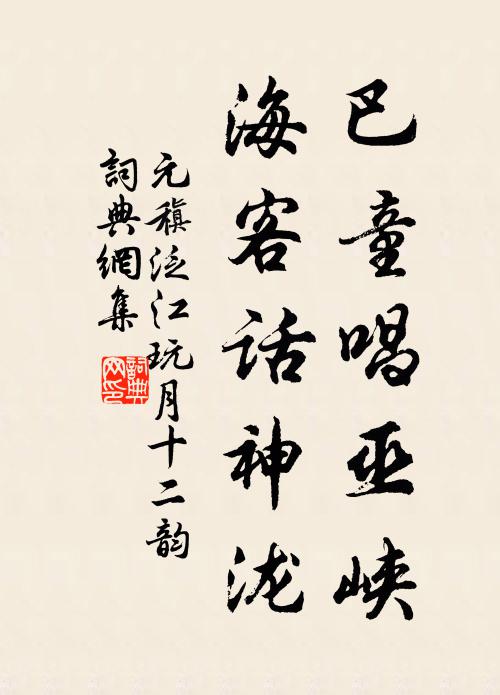 巴童唱巫峡
海客话神泷
元稹泛江玩月十二韵
詞典網集
詞典网印